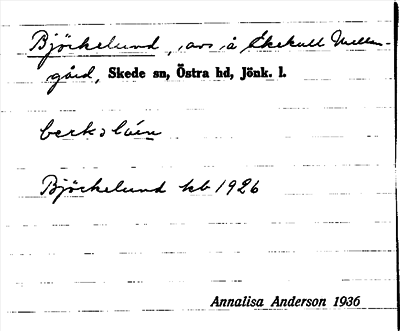 Björkelund, avs å Ekekull Mellan-
gård, Skede sn, Östra hd, Jönk. l.
Björkelund kb 1926
Annalisa Anderson 1936